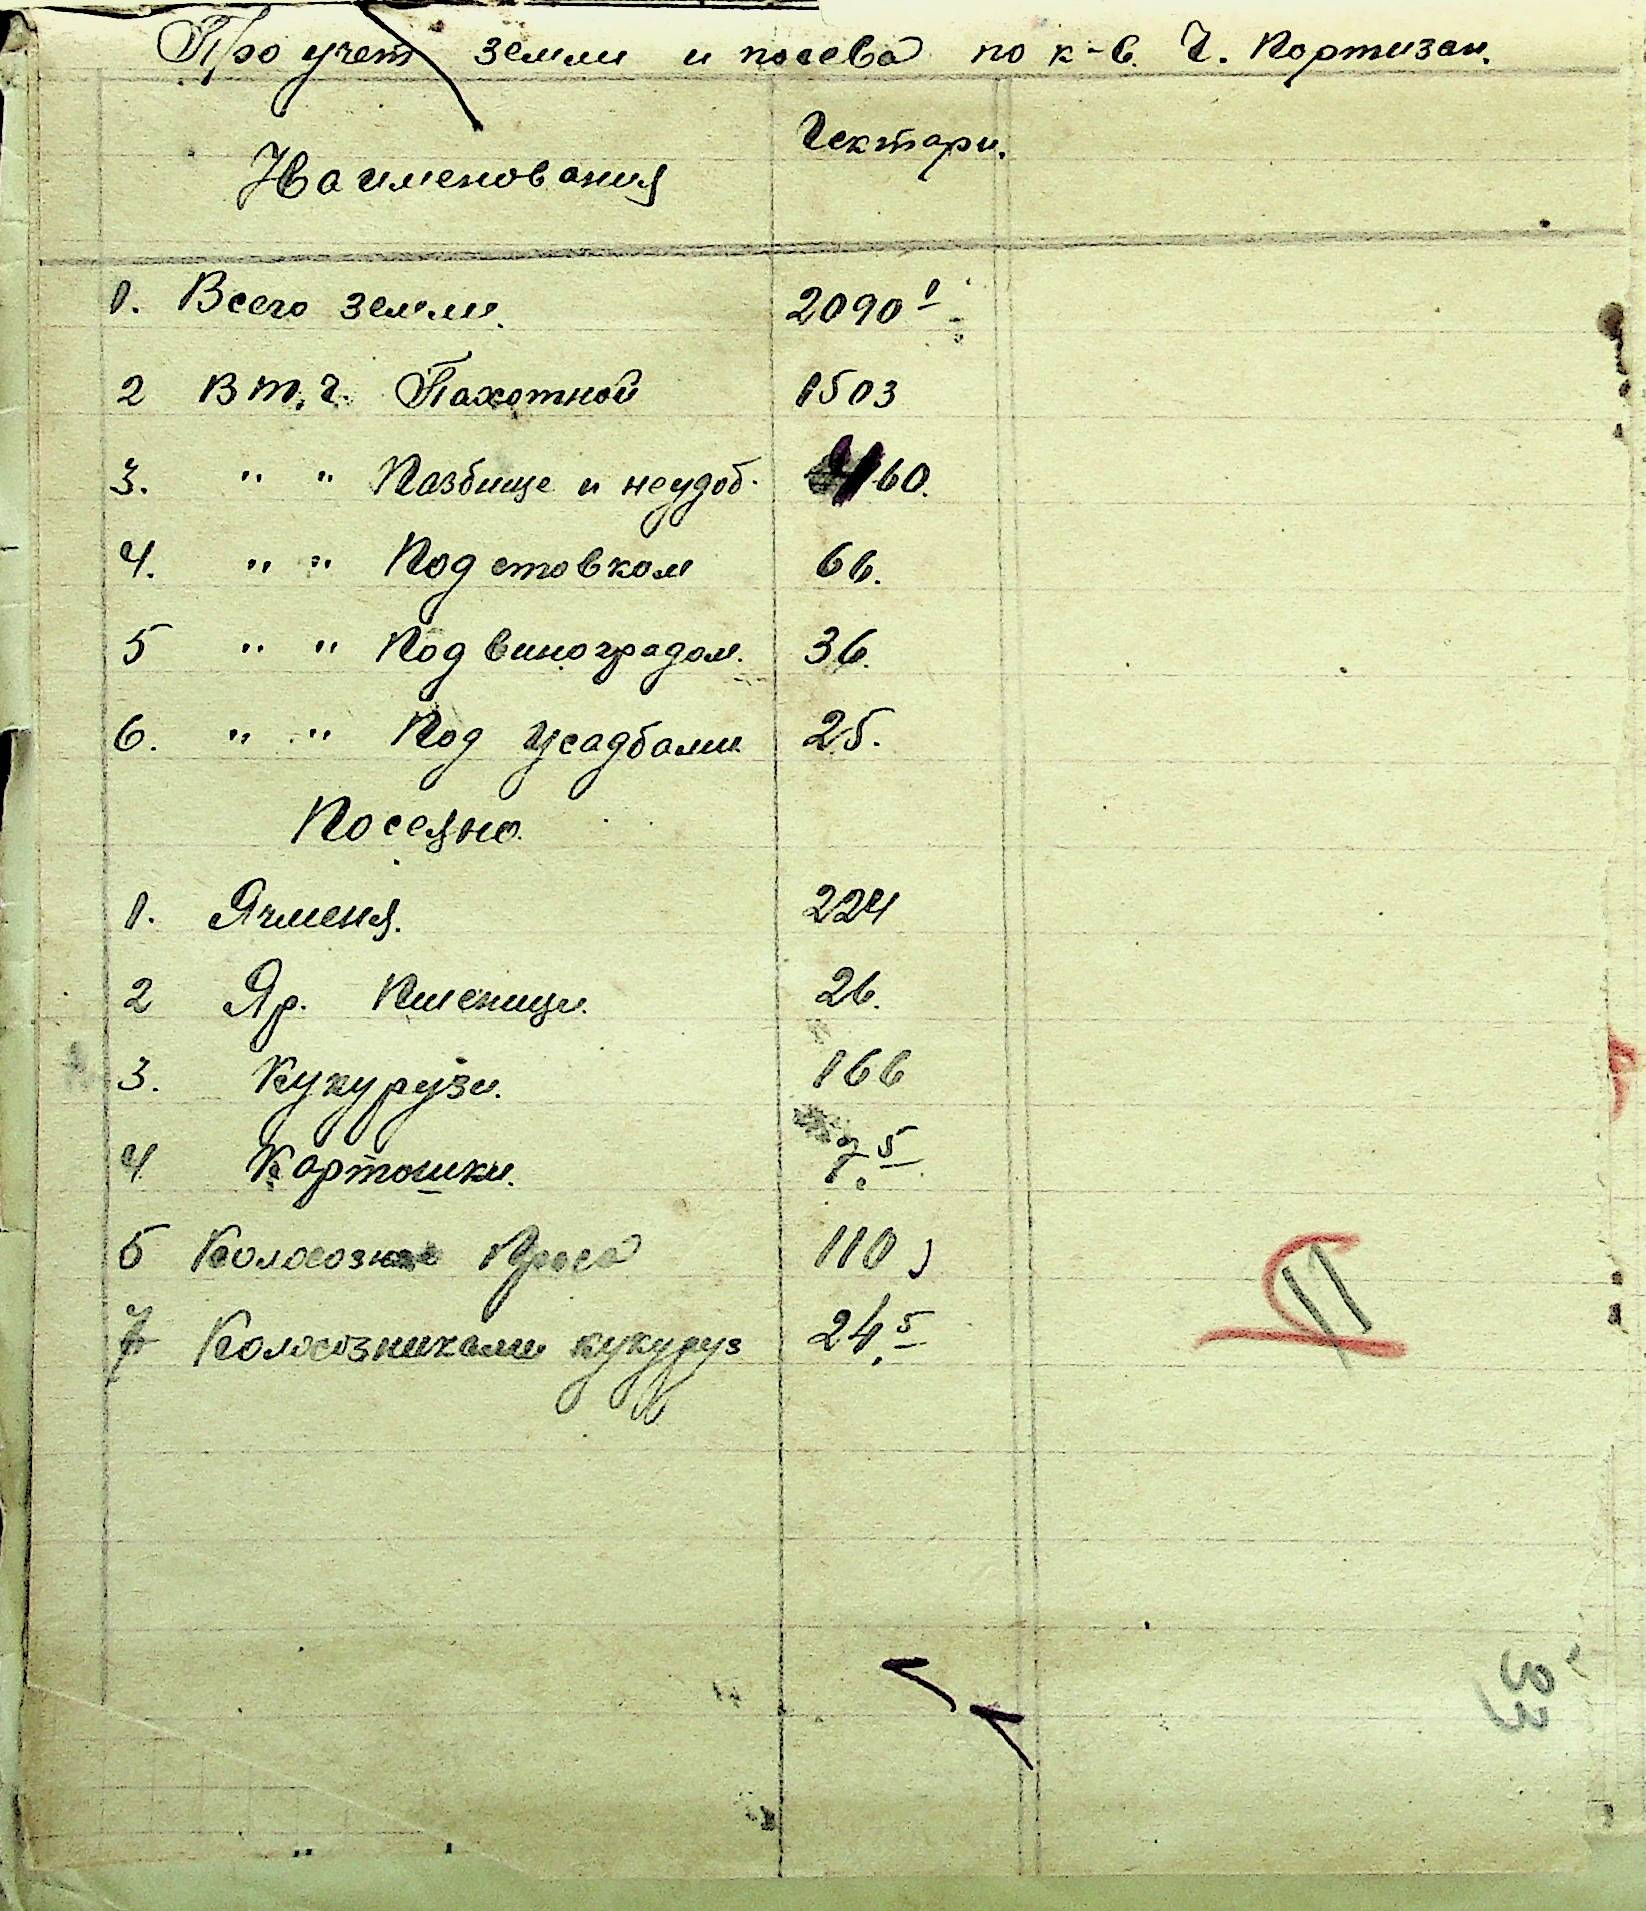 Про учет земли и посева по к-в. Ч. Портизан.
Наименования Гектари.
1. Всего земли. 2090 1
2 В т.ч. Пахотной 1503
3. " " Пазбище и неудоб. 460.
4. " " Под ставком 66.
5 " " Под виноградом. 36.
6. " " Под Усадбами 25.
Посеяно.
1. Ячменя. 224
2 Яр. Пшеници. 26.
3. Кукурузи. 166
4 Картошки. 7.5
5 Проса 110
7 Колосозниками кукуруз 24,5